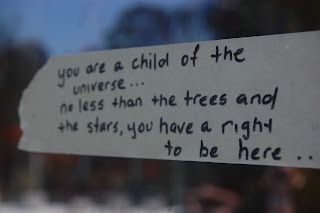 you are a child of the
universe...
no less than the trees and
the stars, you have a right
to be here ..